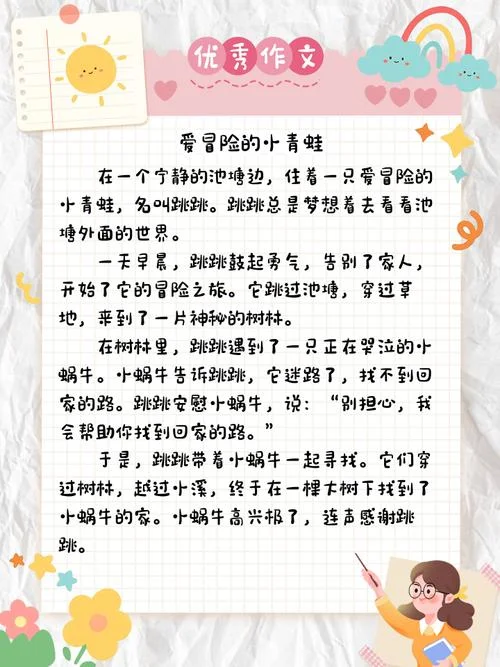 优秀作文
爱冒险的小青蛙
在一个宁静的池塘边，住着一只爱冒险的
小青蛙，名叫跳跳。跳跳总是梦想着去看看池
塘外面的世界。
一天早晨，跳跳鼓起勇气，告别了家人，
开始了它的冒险之旅。它跳过池塘，穿过草
地，来到了一片神秘的树林。
在树林里，跳跳遇到了一只正在哭泣的小
蜗牛。小蜗牛告诉跳跳，它迷路了，找不到回
家的路。跳跳安慰小蜗牛，说：“别担心，我
会帮助你找到回家的路。”
于是，跳跳带着小蜗牛一起寻找。它们穿
过树林，越过小溪，终于在一棵大树下找到了
小蜗牛的家。小蜗牛高兴极了，连声感谢跳
跳。